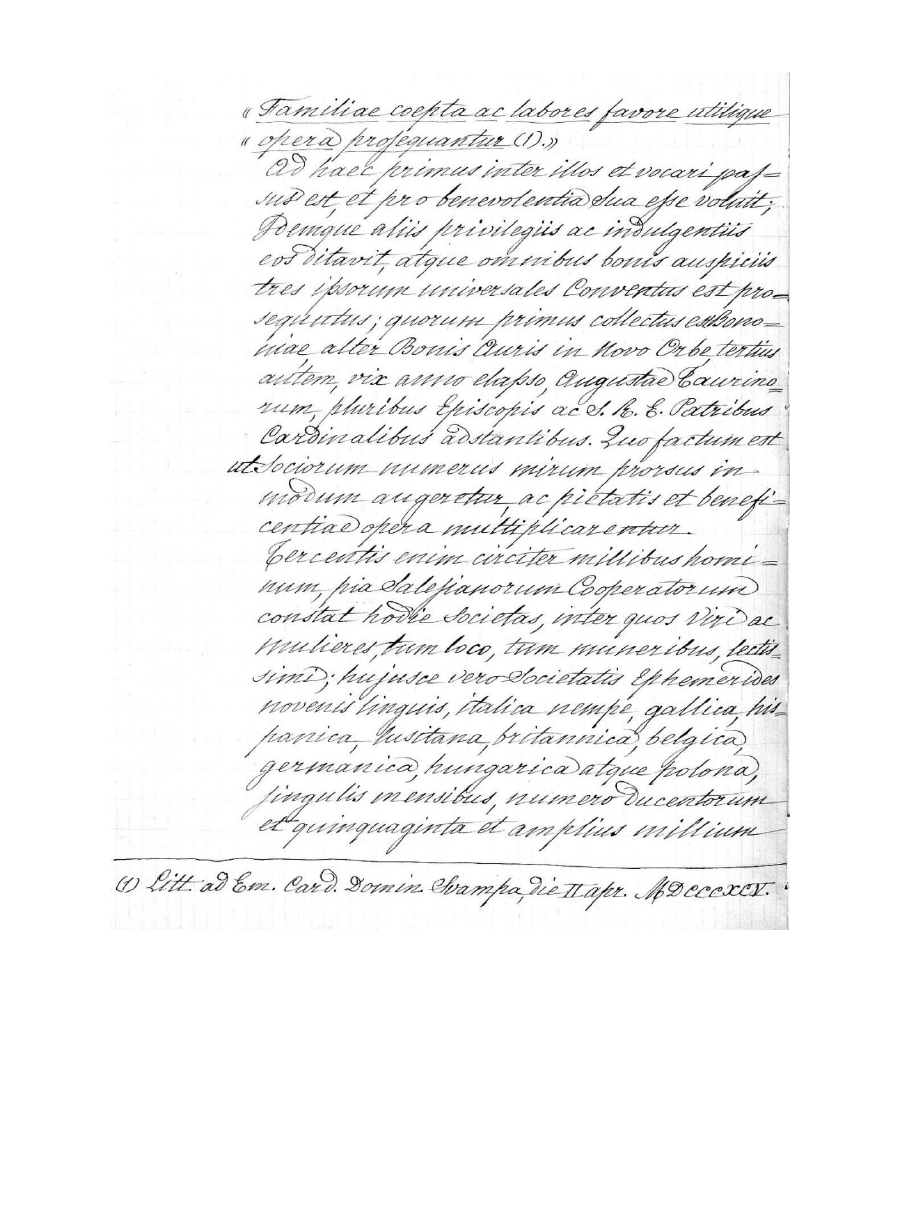 « Familiae coepta ac labores favore utilique
« opera prosequantur (1).»
Ad haec primus inter illos et vocari pas=
sus est, et pro benevolentia Sua esse voluit;
Idemque aliis privilegiis ac indulgentiis
eos ditavit, atque omnibus bonis auspiciis
tres ipsorum universales Conventus est pro=
sequutus; quorum primus collectus est Bono=
niae, alter Bonis Auris in Novo Orbe, tertius
autem, vix anno elapso, Augustae Taurino=
rum, pluribus Episcopis ac S. R. E. Patribus
Cardinalibus adstantibus. Quo factum est
ut Sociorum numerus mirum prorsus in
modum augeretur, ac pietatis et benefi=
centiae opera multiplicarentur.
Tercentis enim circiter millibus homi=
num, pia Salesianorum Cooperatorum
constat hodie Societas, inter quos Viri ac
mulieres, tum loco, tum muneribus, lectis=
simi; hujusce vero Societatis Ephemerides
novenis linguis, italica nempe, gallica, his=
panica, lusitana, britannica, belgica,
germanica, hungarica atque polona,
singulis mensibus, numero ducentorum
et quinquaginta et amplius millium
(1) Litt. ad Em. Card. Domin Svampa, die II apr. MDCCCXCV.